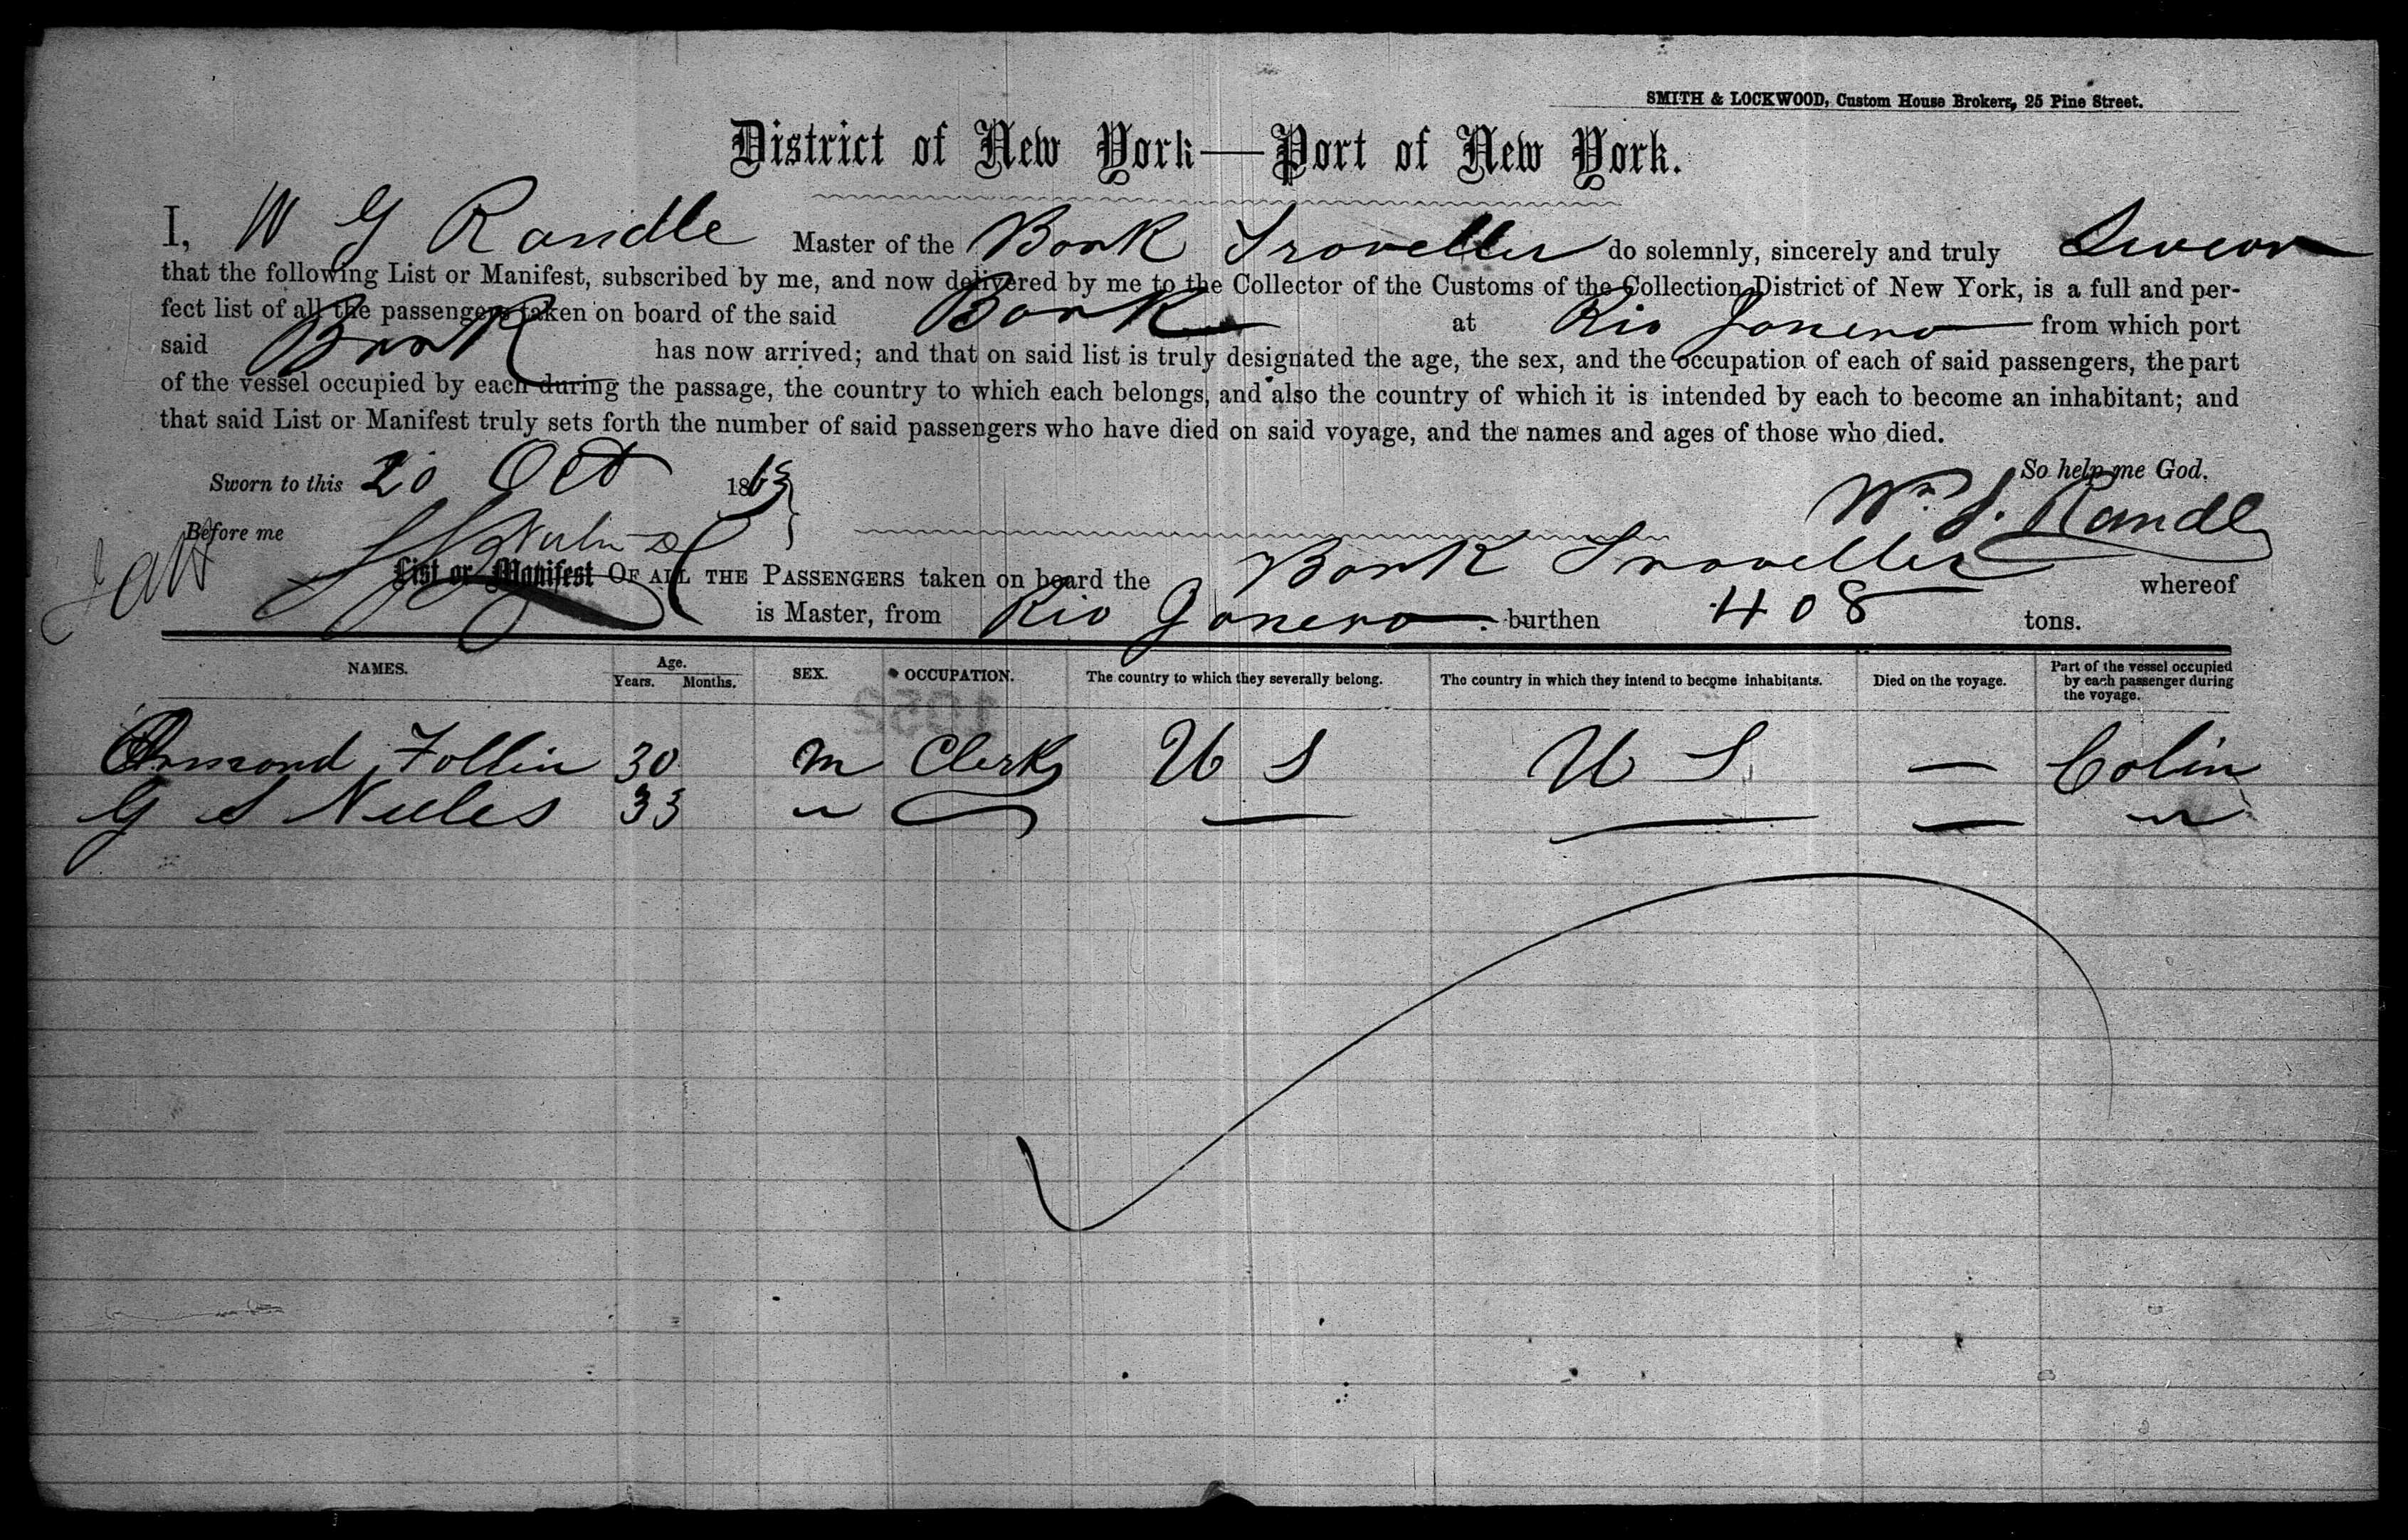 SMITH & LOCKWOOD, Custom House Brokers, 25 Pine Street.
District of New York—Port of New York.
I, W G Randle Master of the Bark Traveller do solemnly, sincerely and truly Swear
that the following List or Manifest, subscribed by me, and now delivered by me to the Collector of the Customs of the Collection District of New York, is a full and per-
fect list of all the passengers taken on board of the said Bark at Rio Janero from which port
said Bark has now arrived; and that on said list is truly designated the age, the sex, and the occupation of each of said passengers, the part
of the vessel occupied by each during the passage, the country to which each belongs, and also the country of which it is intended by each to become an inhabitant; and
that said List or Manifest truly sets forth the number of said passengers who have died on said voyage, and the names and ages of those who died.
So help me God.
Sworn to this 20 Oct 1863
Wm. G. Randle
Before me
List or Manifest OF ALL THE PASSENGERS taken on board the Bark Traveller whereof
is Master, from Rio Janero burthen 408 tons.
NAMES. Age. Years. Months. SEX. OCCUPATION. The country to which they severally belong. The country in which they intend to become inhabitants. Died on the voyage. Part of the vessel occupied by each passenger during the voyage.
1052
Ormond Follin 30 M Clerk U S U S — Cabin
G S 33 " — — — "